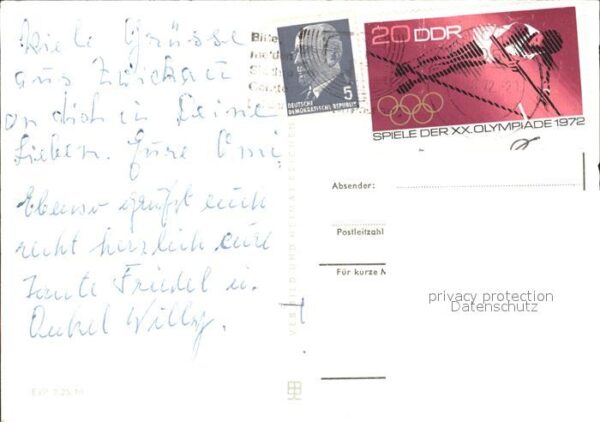 Viele Grüsse
aus Zwickau
an dich u Deine
Lieben. Eure Omi
Ebenso grüßt euch
recht herzlich eure
Tante Friedel u.
Onkel Willy.
DEUTSCHE
DEMOKRATISCHE REPUBLIK
5
20 DDR
SPIELE DER XX. OLYMPIADE 1972
Absender:
Postleitzahl
Für kurze M
privacy protection
Datenschutz
VEB BILD UND HEIMAT REICHENBACH